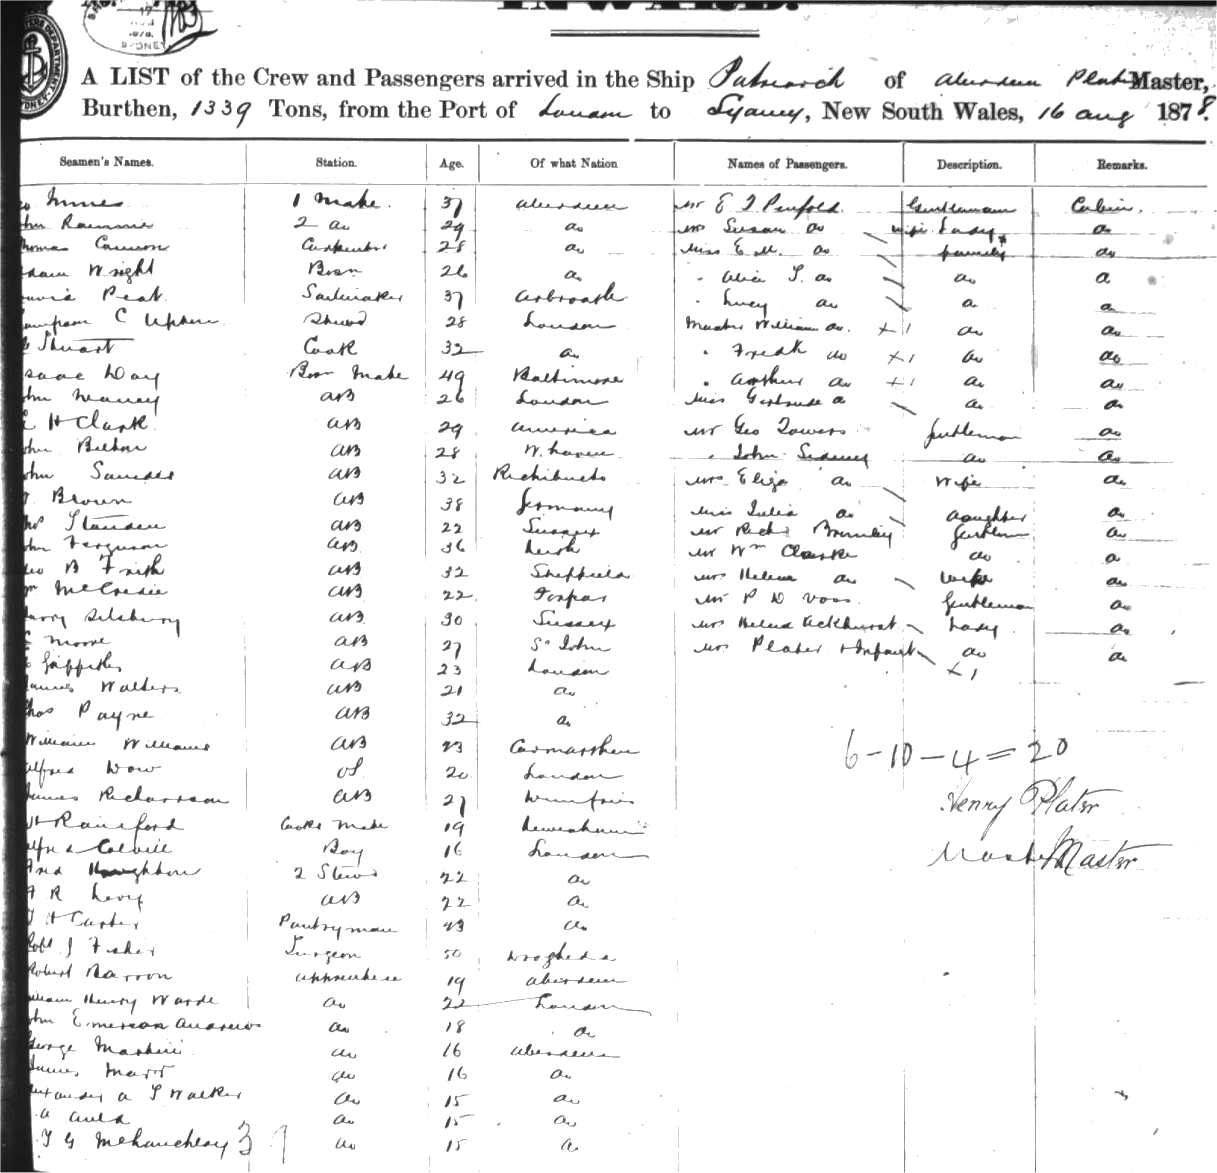 INWARD.
SYDNEY
A LIST of the Crew and Passengers arrived in the Ship Patriarch of Aberdeen Plater Master,
Burthen, 1339 Tons, from the Port of London to Sydney, New South Wales, 16 Aug 1878.
Seamen's Names. Station. Age. Of what Nation Names of Passengers. Description. Remarks.
Innes 1 Mate. 37 Aberdeen Mr E Penfold Gentleman Cabin.
2 do 29 do Mrs Susan do wife Lady do
Cannon Carpenter 28 do Miss E. M. do family do
Wright Bosn 26 do " Alice do do do
Peat Sailmaker 37 Arbroath " Lucy do do do
C Upham Steward 28 London Master William do x 1 do do
Stuart Cook 32 do " Fredk do x 1 do do
Isaac Day Bosn Mate 49 Baltimore " Arthur do x 1 do do
AB 26 London Miss Gertrude do do do
H Clark AB 29 America Mr Geo Towers Gentleman do
AB 28 W. haven " John Sidney do do
AB 32 Richibucto Mrs Eliza do Wife do
Brown AB 38 Germany Miss Julia do daughter do
Standen AB 22 Sussex Mr Richd Gentlemn do
Ferguson AB 36 Leith Mr Wm Clarke do do
B Frith AB 32 Sheffield Mrs Helena do wife do
McCredie AB 22 Forfar Mr P D Voss Gentleman do
AB 30 Sussex Mrs Helena Ackhurst Lady do
Moore AB 27 St John Mrs Plater & Infant do do
Griffiths AB 23 London x 1
James Walters AB 21 do
Payne AB 32 do
William Williams AB 23 Carmarthen 6-10-4=20
Alfred Dow OS 20 London
James Richardson AB 27 Dumfries Henry Plater
Rainsford Cooks Mate 19
Alfred Colvill Boy 16 London Master
Fred Houghton 2 Stewd 22 do
F R Levy AB 22 do
H Carter Pantryman 23 do
Robt J Fisher Surgeon 50 Drogheda
Robert Barron Apprentice 19 Aberdeen
William Henry Warde do 22 London
John Emerson Andrews do 18 do
George do 16 Aberdeen
James Marr do 16 do
Alexander A Walker do 15 do
A Auld do 15 do
do 15 do